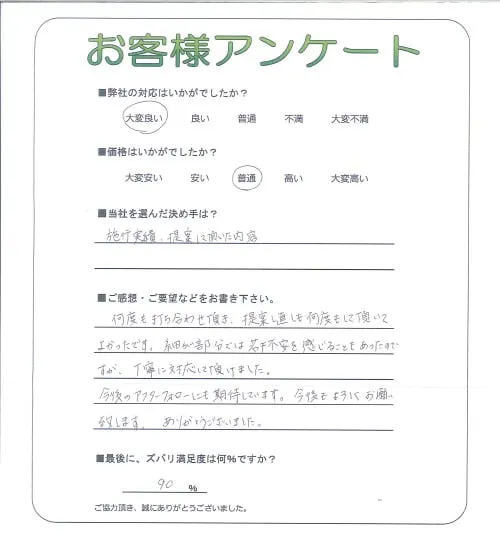 お客様アンケート
■弊社の対応はいかがでしたか？
大変良い 良い 普通 不満 大変不満
■価格はいかがでしたか？
大変安い 安い 普通 高い 大変高い
■当社を選んだ決め手は？
施行実績、提案して頂いた内容
■ご感想・ご要望などをお書き下さい。
何度も打ち合わせ頂き、提案し直しも何度もして頂いて
よかったです。細かい部分では若干不安を感じることもあったので
すが、丁寧に対応して頂けました。
今後のアフターフォローにも期待しています。今後もよろしくお願い
致します。ありがとうございました。
■最後に、ズバリ満足度は何％ですか？
90 %
ご協力頂き、誠にありがとうございました。